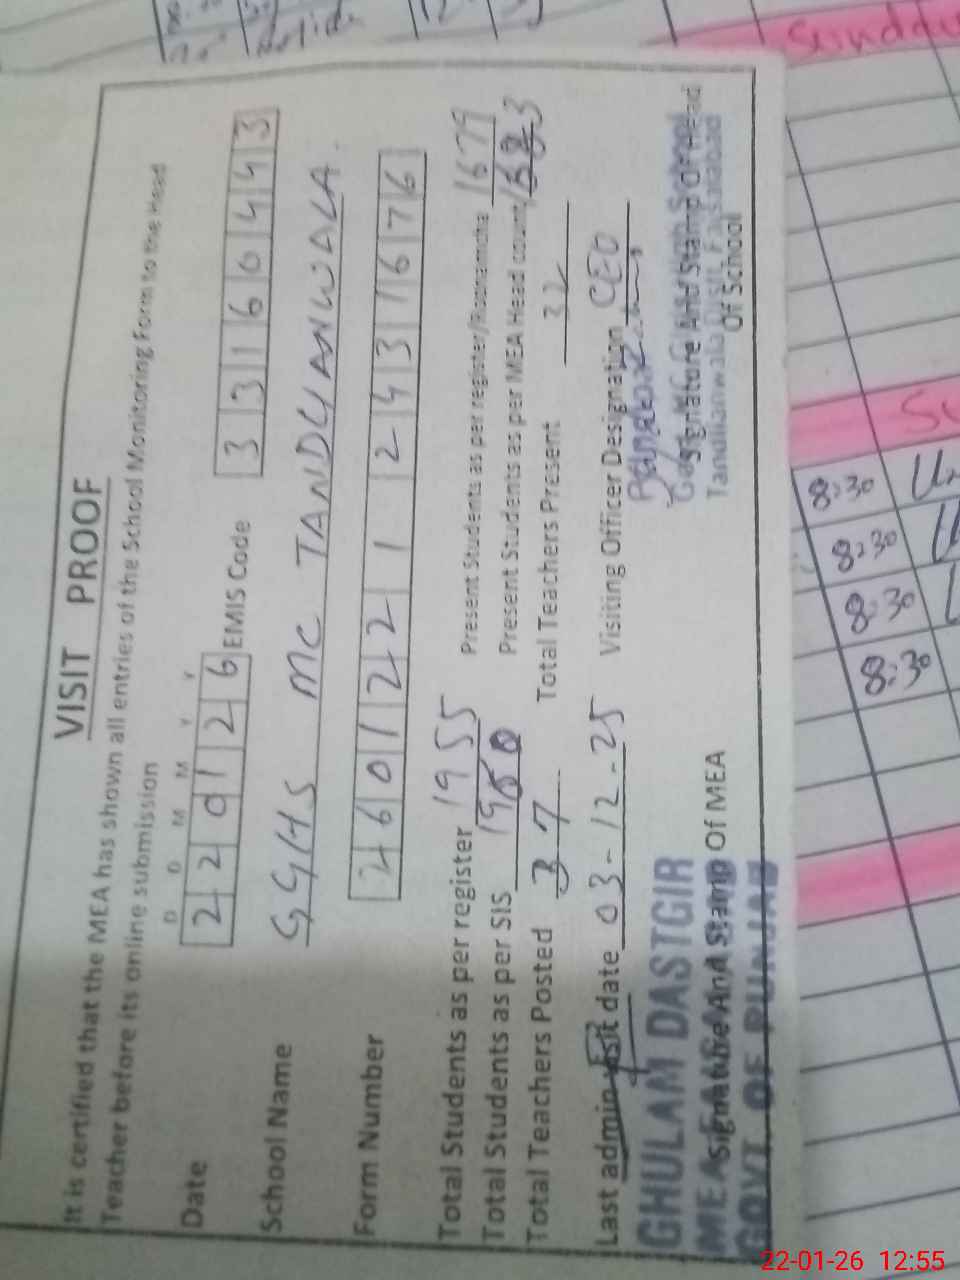 VISIT PROOF
It is certified that the MEA has shown all entries of the School Monitoring Form to the Head
Teacher before its online submission
D D M M Y Y
Date 220126 EMIS Code 33160443
School Name GGHS MC TANDLIANWALA.
Form Number 26012212431676
Total Students as per register 1955 Present Students as per register/Roznamcha 1679
Total Students as per SIS 1950 Present Students as per MEA Head count
Total Teachers Posted 37 Total Teachers Present 32
Last admin date 03-12-25 Visiting Officer Designation CEO
GHULAM DASTGIR
Signature And Stamp Of MEA
GOVT. OF PUNJAB
Signature And Stamp Of Head
Tandlianwala Distt. Faisalabad
Of School
8:30
8:30
8:30
8:30
22-01-26 12:55